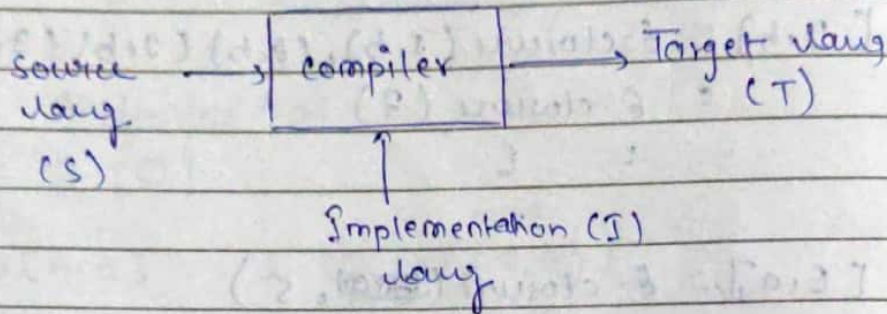 source
lang
(S)
compiler
Target lang
(T)
Implementation (I)
lang